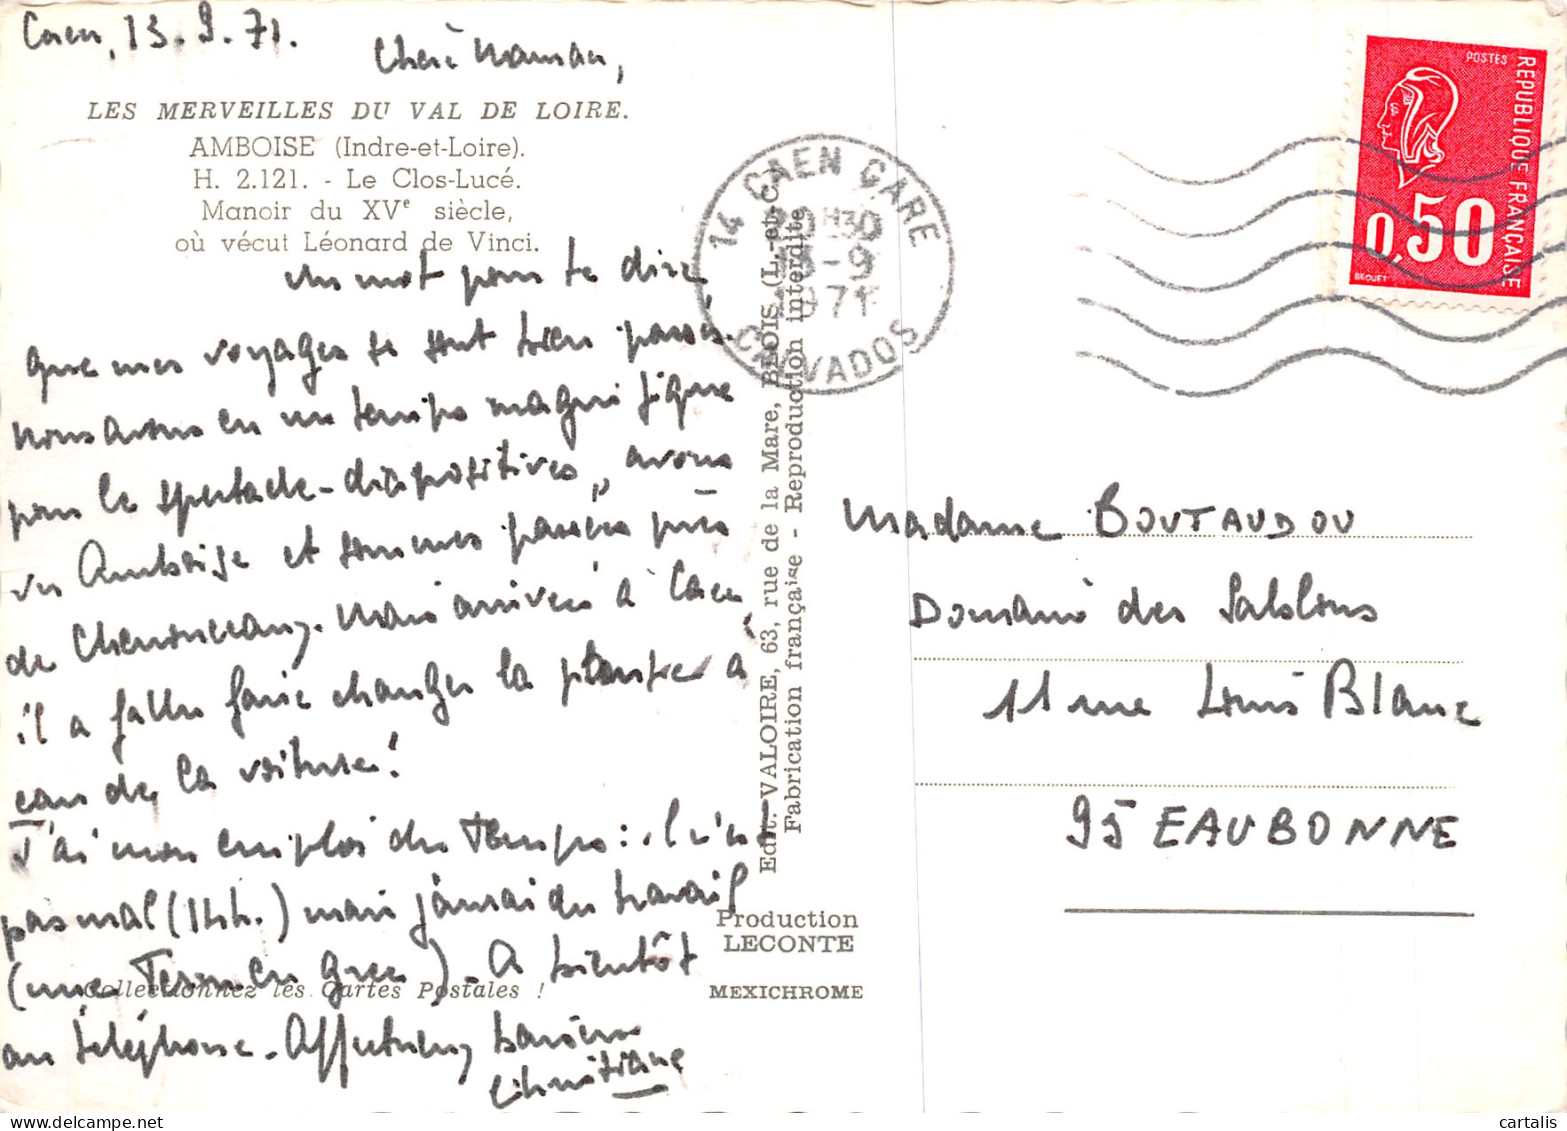 Caen, 13.9.71.
Chère Maman,
LES MERVEILLES DU VAL DE LOIRE.
AMBOISE (Indre-et-Loire).
H. 2.121. - Le Clos-Lucé.
Manoir du XVe siècle,
où vécut Léonard de Vinci.
Un mot pour te dire
que mes voyages se sont bien passés
nous avons eu un temps magnifique
pour le spectacle-diapositives, avons
vu Amboise et sommes passés près
de Chenonceaux. Mais arrivés à Caen,
il a fallu faire changer la pompe à
eau de la voiture!
J'ai mon emploi du temps: il n'est
pas mal (14h.) mais j'aurai du travail
(une Term. en grec). A bientôt
au téléphone. Affectueux baisers
Christiane
Collectionnez les Cartes Postales !
Edit. VALOIRE, 63, rue de la Mare, BLOIS (L.-et-C.)
Fabrication française - Reproduction interdite
Production
LECONTE
MEXICHROME
14 CAEN GARE
20H30
13-9
1971
CALVADOS
POSTES
REPUBLIQUE FRANÇAISE
0,50
BEQUET
Madame BOUTAUDOU
Domaine des Sablons
11 rue Louis Blanc
95 EAUBONNE
cartalis